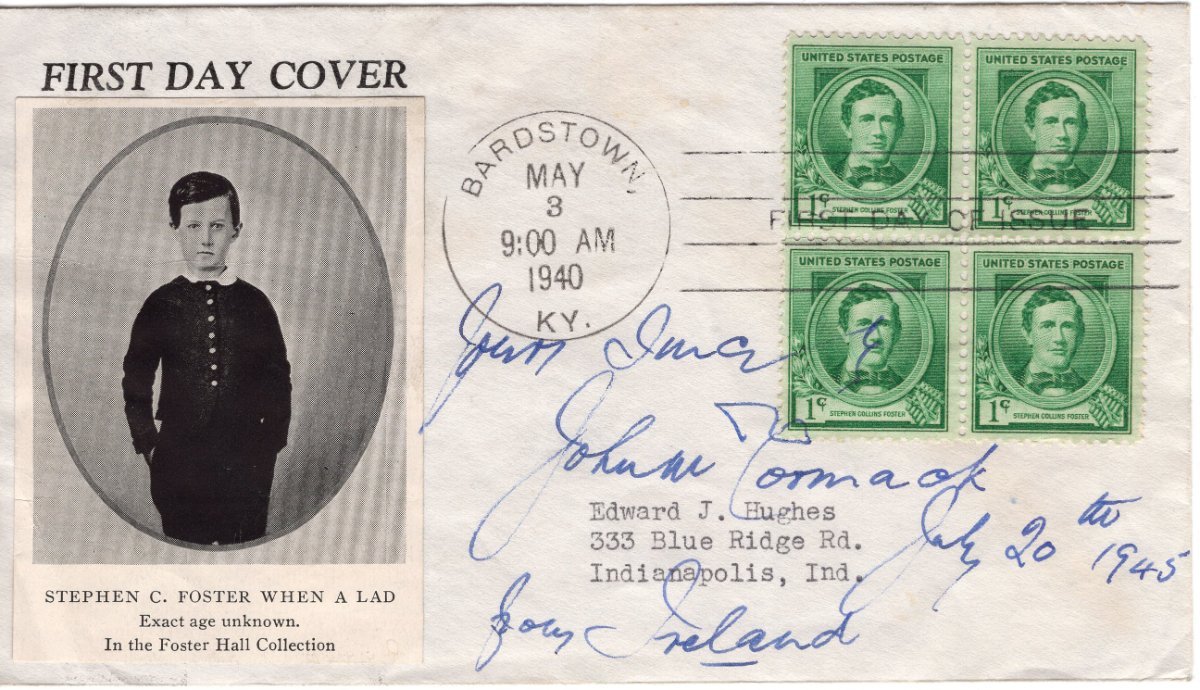 FIRST DAY COVER
BARDSTOWN,
MAY
3
9:00 AM
1940
KY.
UNITED STATES POSTAGE
1¢
STEPHEN COLLINS FOSTER
UNITED STATES POSTAGE
1¢
STEPHEN COLLINS FOSTER
FIRST DAY OF ISSUE
UNITED STATES POSTAGE
1¢
STEPHEN COLLINS FOSTER
UNITED STATES POSTAGE
1¢
STEPHEN COLLINS FOSTER
John McCormack
Edward J. Hughes
333 Blue Ridge Rd.
Indianapolis, Ind.
July 20th 1945
from Ireland
STEPHEN C. FOSTER WHEN A LAD
Exact age unknown.
In the Foster Hall Collection